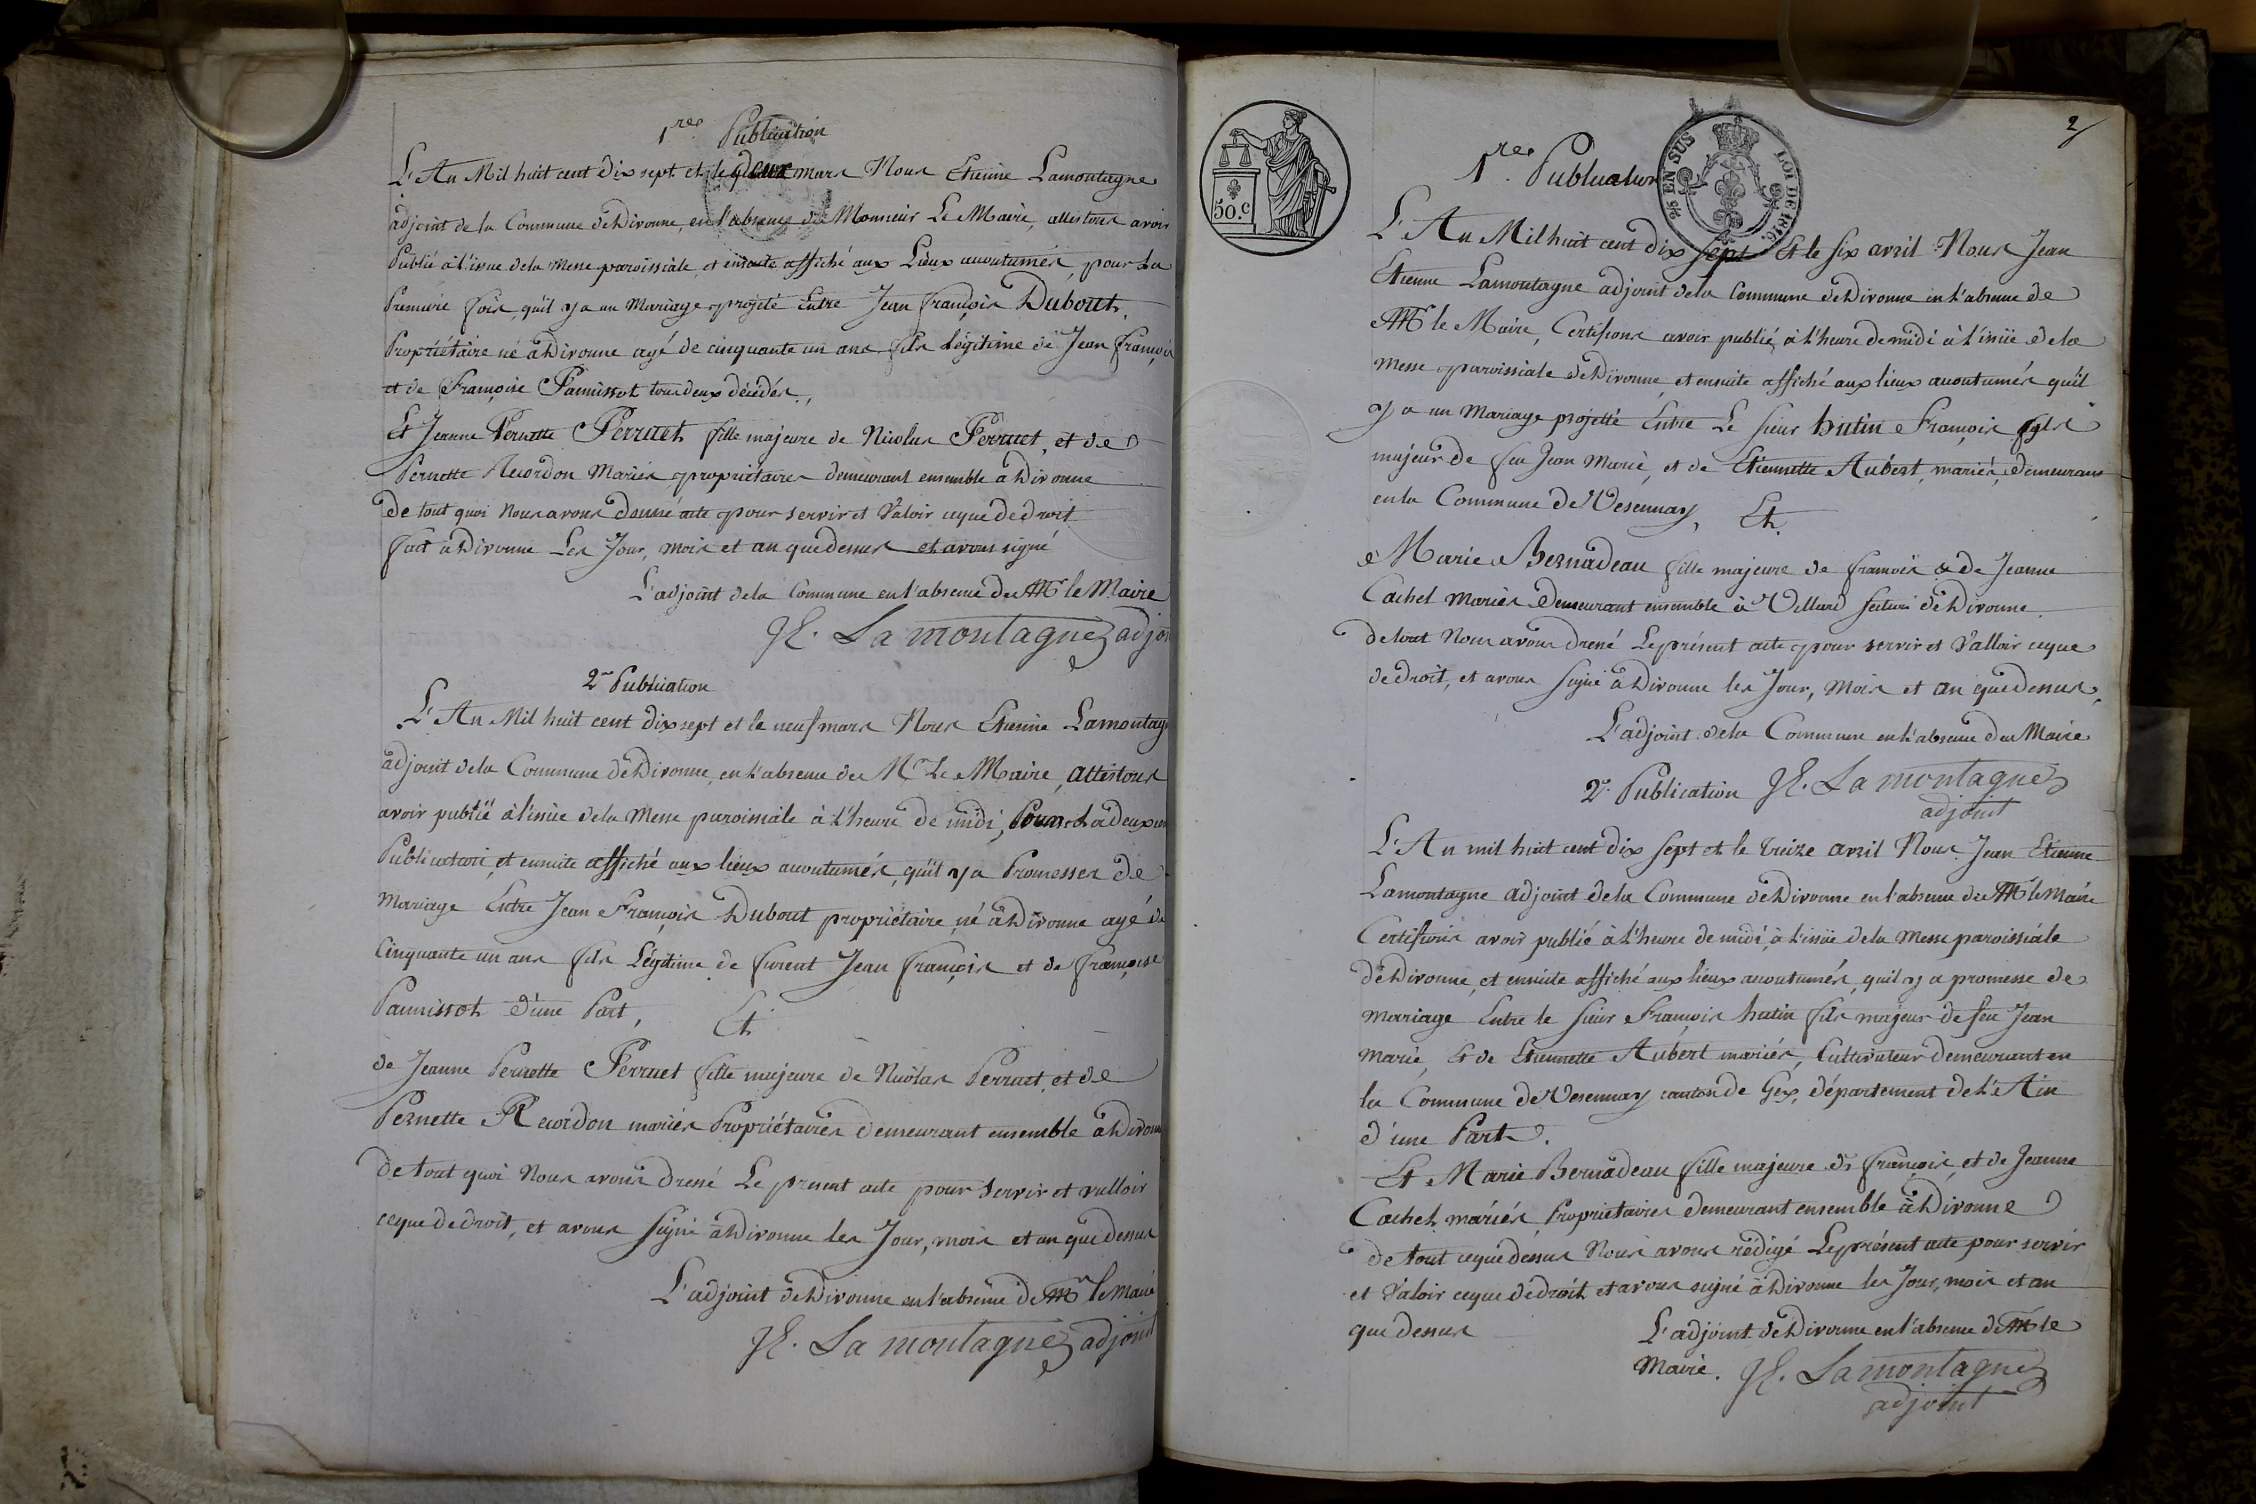 1re Publication
L'An Mil huit cent dix sept et le deux mars Nous Etienne Lamontagne
adjoint de la Commune de Divonne, en l'absence de Monsieur Le Maire, attestons avoir
Publié à l'issue de la Messe paroissiale, et ensuite affiché aux Lieux accoutumés, pour la
Premiere fois, qu'il y a un Mariage projeté Entre Jean François Dubout,
Propriétaire né à Divonne agé de cinquante un ans fils légitime de Jean François
et de Françoise Pannissot tous deux décédés,
Et Jeanne Pernette Perruet fille majeure de Nicolas Perruet, et de
Pernette Recordon Mariés propriétaires demeurant ensemble à Divonne
de tout quoi Nous avons donné acte pour servir et Valoir ce que de droit
fait à Divonne Les Jour, mois et an que dessus et avons signé
L'adjoint de la Commune en l'absence de Mr le Maire
JE. Lamontagne adjoi
2e Publication
L'An Mil huit cent dix sept et le neuf mars Nous Etienne Lamontag
adjoint de la Commune de Divonne, en l'absence de Mr Le Maire, attestons
avoir publié à l'issüe de la Messe paroissiale à l'heure de midi, Pour La deuxiem
Publication, et ensuite affiché aux lieux accoutumés, qu'il y a Promesses de
Mariage Entre Jean François Dubout propriétaire né à Divonne agé de
Cinquante un ans fils Légitime de furent Jean François et de Françoise
Pannissot d'une Part, Et
de Jeanne Pernette Perruet fille majeure de Nicolas Perruet, et de
Pernette Recordon mariés Propriétaires demeurant ensemble à Divonne
de tout quoi Nous avons dressé Le present acte pour servir et valloir
ce que de droit, et avons signé à Divonne les Jour, mois et an que dessus
L'adjoint de Divonne en l'absence de Mr le Maire
JE. Lamontagne adjoint
2
50.c
5/s EN SUS LOI DE 1816.
1re Publication
L'An Mil huit cent dix sept Et le six avril Nous Jean
Etienne Lamontagne adjoint de la Commune de Divonne en l'absence de
Mr le Maire, Certifions avoir publié, à l'heure de midi à l'issüe de la
Messe paroissiale de Divonne, et ensuite affiché aux lieux accoutumés qu'il
y a un Mariage projetté Entre Le sieur hutin François fils
majeur de feu Jean Marie, et de Etiennette Aubert, mariés, demeurans
en la Commune de Vesennay, Et
Marie Bernadeau fille majeure de françois & de Jeanne
Cachet Mariés Demeurant ensemble à Villard section de Divonne
de tout Nous avons dressé Le présent acte pour servir et Valloir ce que
de droit, et avons signé à Divonne les Jour, Mois et an que dessus,
L'adjoint de la Commune en l'absence du Maire
2e Publication JE. Lamontagne
adjoint
L'An mil huit cent dix sept et le treize avril Nous Jean Etienne
Lamontagne adjoint de la Commune de Divonne en l'absence de Mr le Maire
Certifions avoir publié à l'heure de midi, à l'issüe de la Messe paroissiale
de Divonne, et ensuite affiché aux lieux accoutumés, qu'il y a promesse de
Mariage Entre le sieur François hutin fils majeur de feu Jean
Marie, Et de Etiennette Aubert mariés, Cultivateur demeurant en
la Commune de Vesennay canton de Gex, département de l'Ain
d'une Part.
Et Marie Bernadeau fille majeure de françois, et de Jeanne
Cachet, mariés Propriétaires demeurant ensemble à Divonne
de tout ce que dessus Nous avons rédigé Le présent acte pour servir
et Valoir ce que de droit et avons signé à Divonne les Jour, mois et an
que dessus L'adjoint de Divonne en l'absence de Mr le
Maire. JE. Lamontagne
adjoint